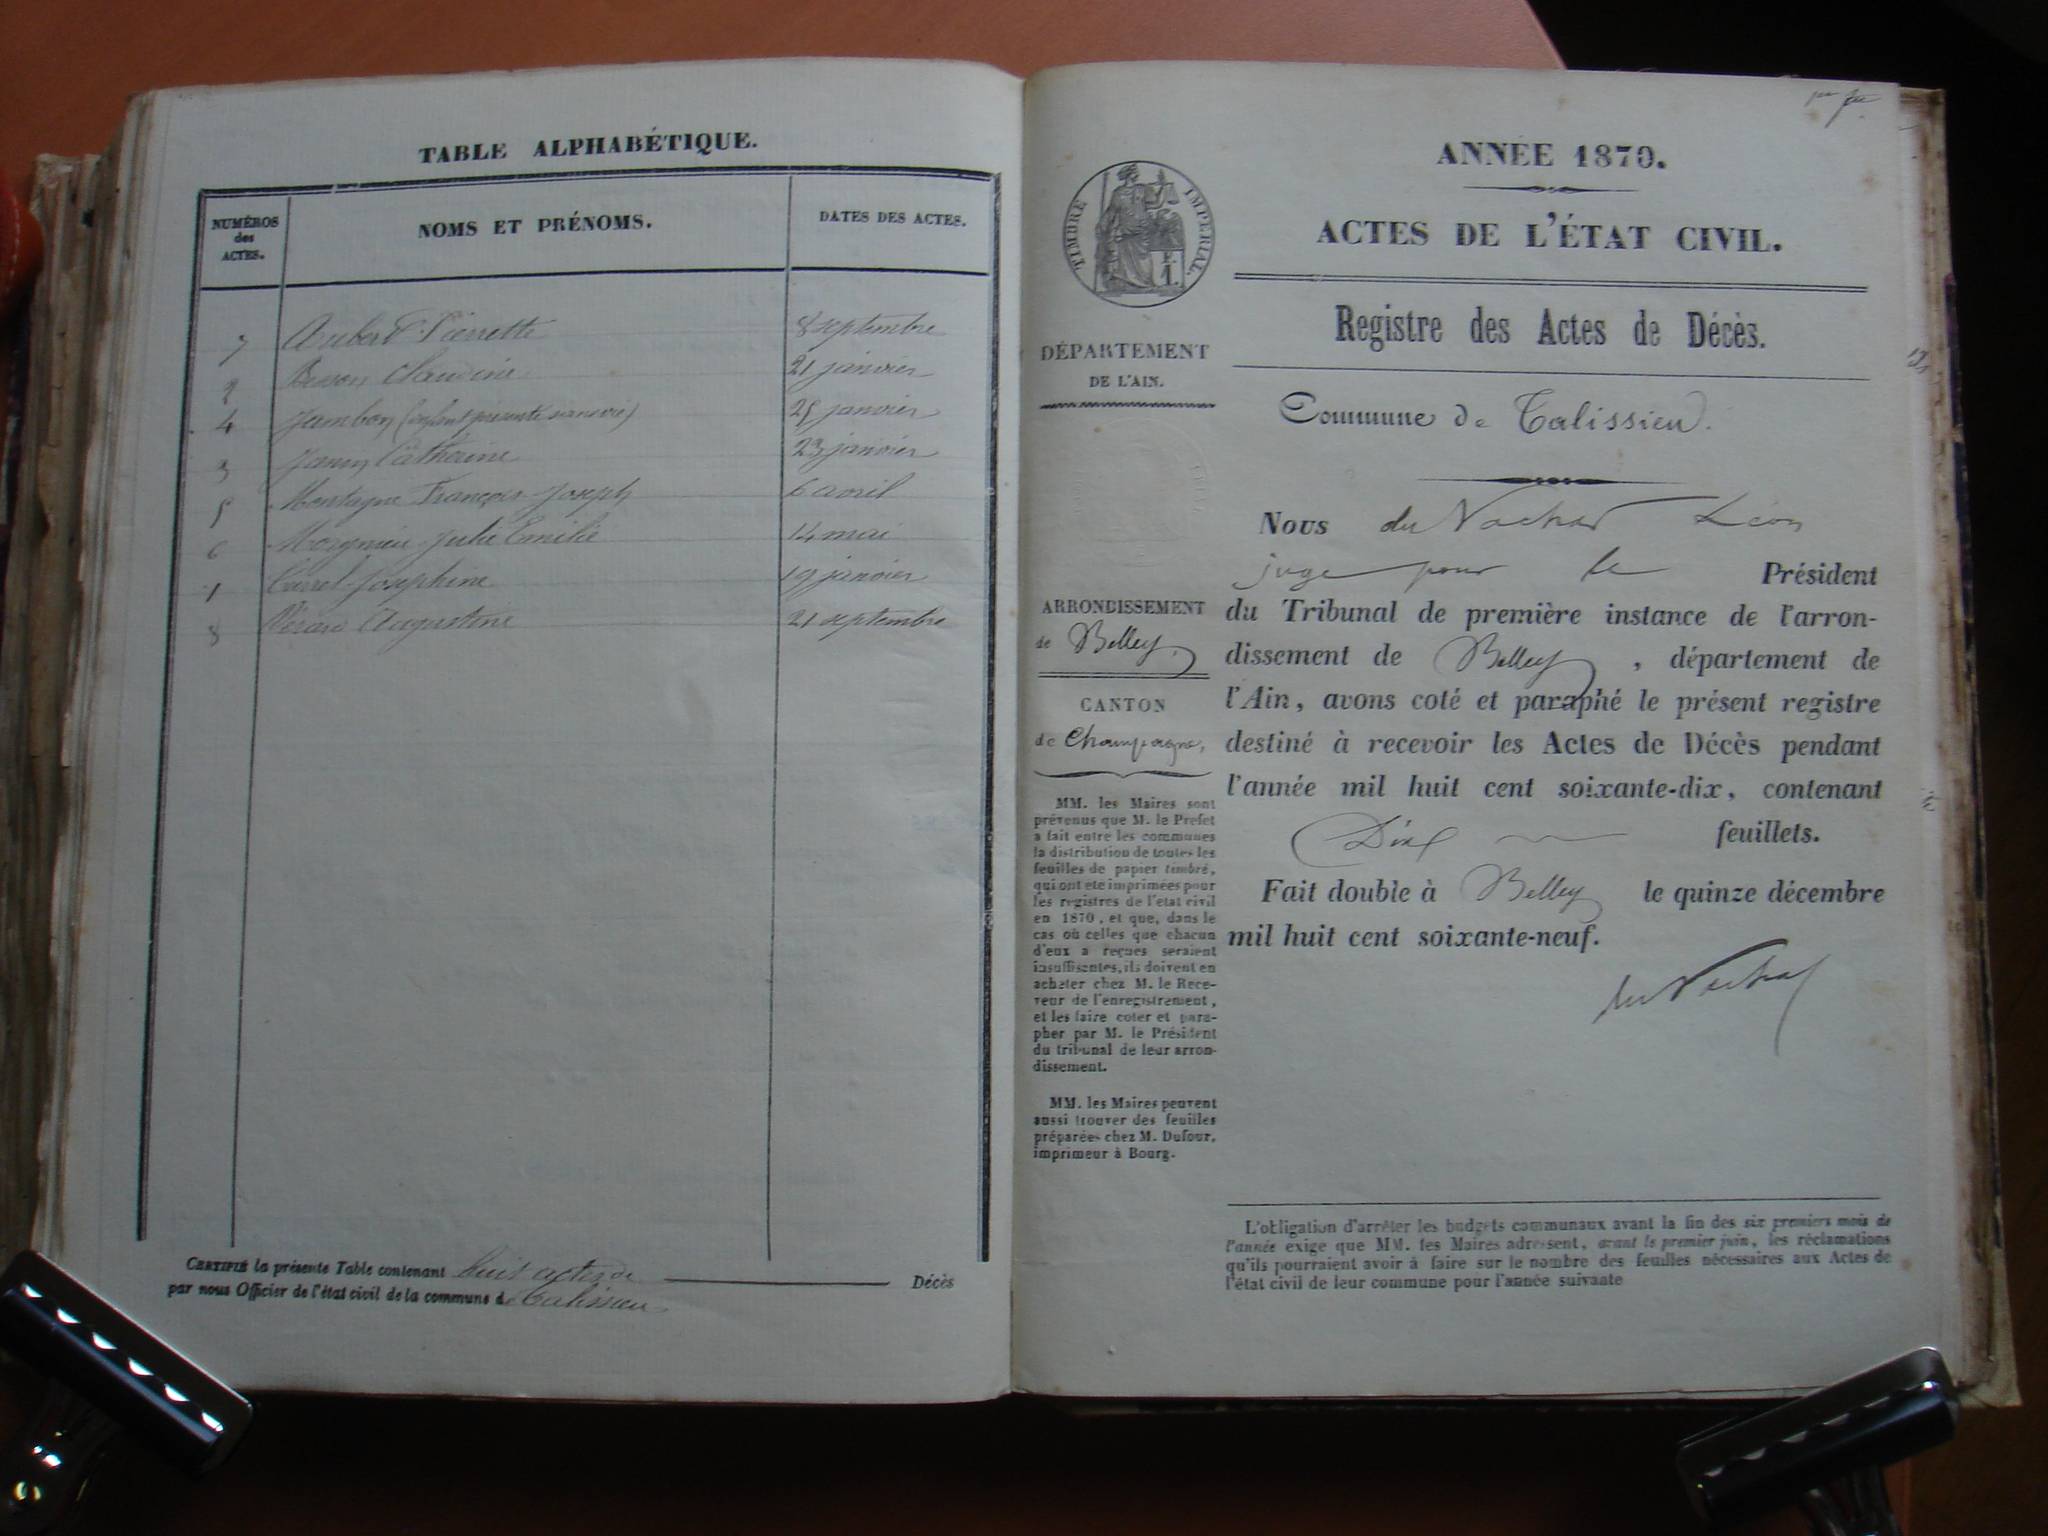 TABLE ALPHABÉTIQUE.
NUMÉROS
des
ACTES.
NOMS ET PRÉNOMS.
DATES DES ACTES.
7 Aubert Pierrette 8 septembre
2 Besson Claudine 21 janvier
4 Jambon (enfant présenté sans vie) 25 janvier
3 Catherine 23 janvier
5 Montagne François Joseph 6 avril
6 Julie Emilie 14 mai
1 Joséphine 19 janvier
8 Augustine 21 septembre
CERTIFIÉ la présente Table contenant huit actes de Décès
par nous Officier de l'état civil de la commune de Talissieu
ANNÉE 1870.
ACTES DE L'ÉTAT CIVIL.
TIMBRE IMPERIAL.
F.
1.
Registre des Actes de Décès.
DÉPARTEMENT
DE L'AIN.
Commune de Talissieu.
Nous du Vachat Léon
juge pour le Président
du Tribunal de première instance de l'arron-
dissement de Belley, département de
l'Ain, avons coté et paraphé le présent registre
destiné à recevoir les Actes de Décès pendant
l'année mil huit cent soixante-dix, contenant
Dix feuillets.
Fait double à Belley le quinze décembre
mil huit cent soixante-neuf.
du Vachat
ARRONDISSEMENT
de Belley
CANTON
de Champagne,
MM. les Maires sont
prévenus que M. le Prefet
a fait entre les communes
la distribution de toutes les
feuilles de papier timbré,
qui ont été imprimées pour
les registres de l'etat civil
en 1870, et que, dans le
cas où celles que chacun
d'eux a reçues seraient
insuffisantes, ils doivent en
acheter chez M. le Rece-
veur de l'enregistrement,
et les faire coter et para-
pher par M. le Président
du tribunal de leur arron-
dissement.
MM. les Maires peuvent
aussi trouver des feuilles
préparées chez M. Dufour,
imprimeur à Bourg.
L'obligation d'arrêter les budgets communaux avant la fin des six premiers mois de
l'année exige que MM. les Maires adressent, avant le premier juin, les réclamations
qu'ils pourraient avoir à faire sur le nombre des feuilles nécessaires aux Actes de
l'état civil de leur commune pour l'année suivante